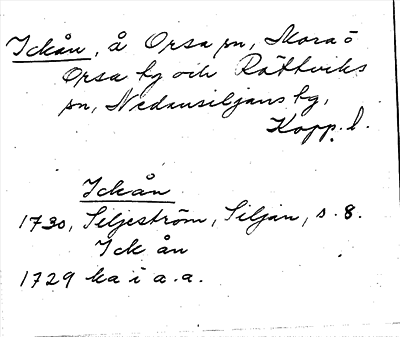 Ickån, å Orsa sn, Mora o
Orsa hg och Rättviks
sn, Nedansiljans hg,
Kopp. l.
Ickån
1730, Siljeström, Siljan, s. 8.
Ick ån
1729 ka i a.a.